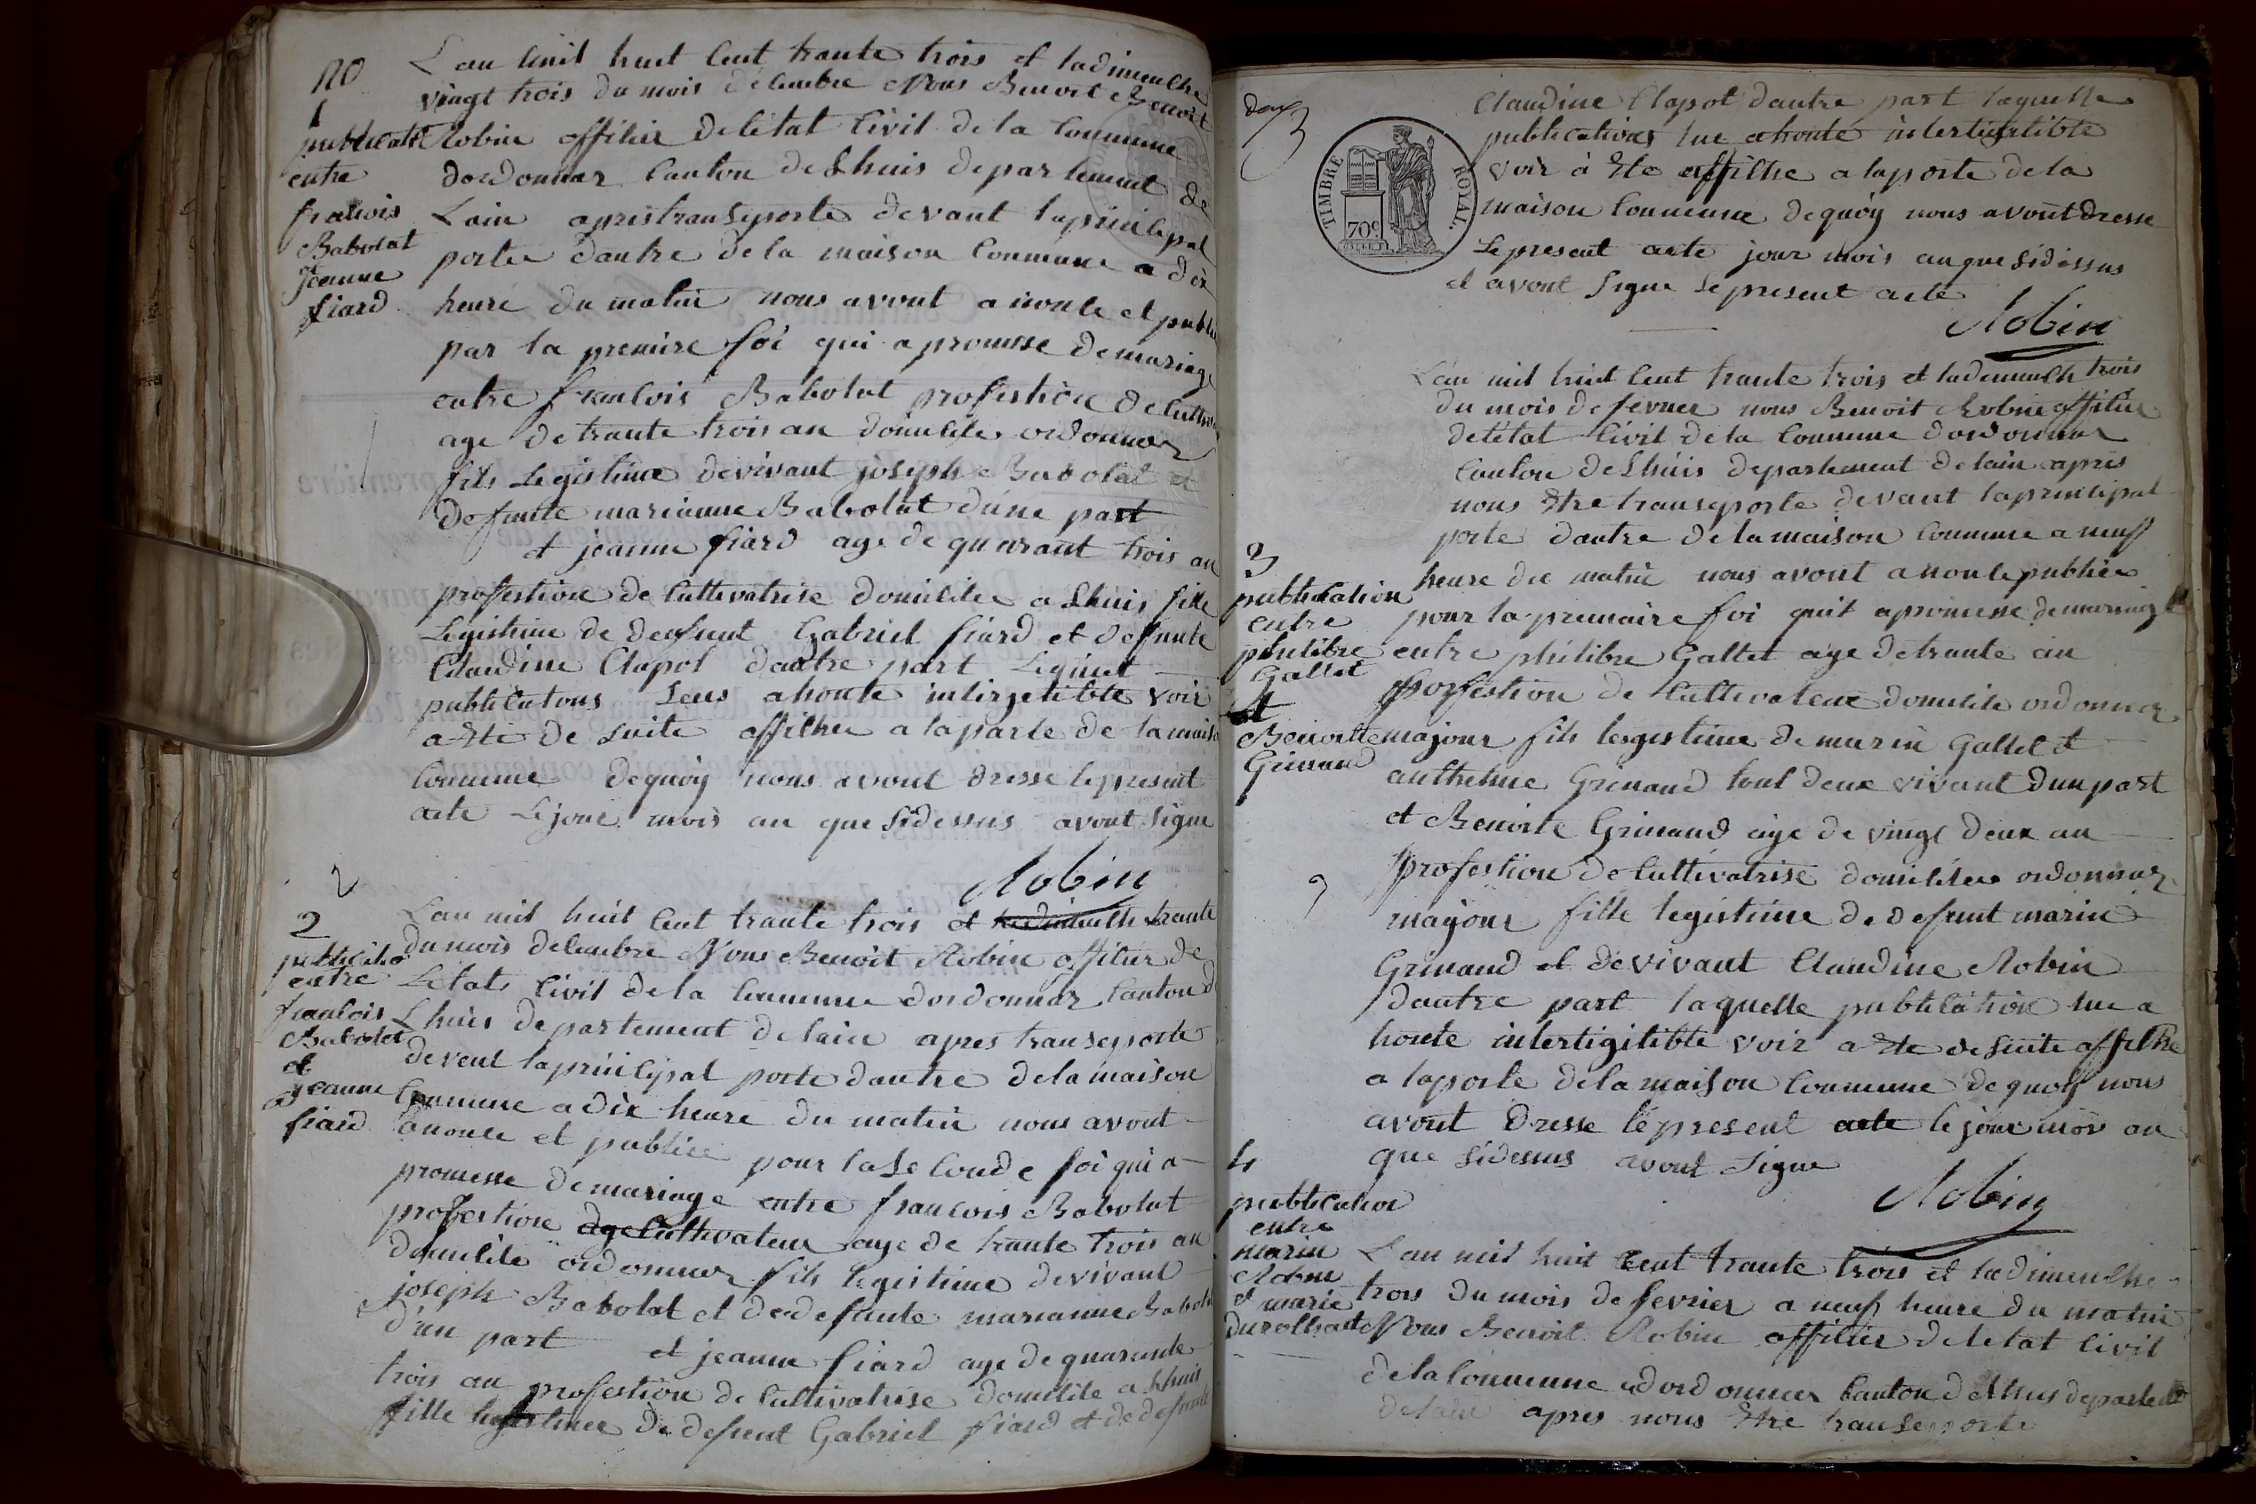 no
1
publicati
entre
francois
Babolat
et
jeanne
fiard
L'an mil huit cent trante trois et ladimenche
vingt trois du mois décembre Nous Benoit Benoit
Robin officier deletat civil de la commune
dordonnaz canton deLhuis departement de
Lain aprestransporte devant laprincipal
porte dantre de la maison commune a dix
heure du matin nous avont anonce et publie
par la premire foi qui apromesse demariage
entre francois Babolat profestion decultiva
age detrante trois an domicile ordonnaz
fils Legistime devivant joseph Babolat et
defunte marianne Babolat dune part
et jeanne fiard age de quarant trois an
profestion de cultivatrise domicilie a Lhuis fille
Legistime de defunt Gabriel fiard et defunte
Claudine Clapot dautre part Lequel
publicatons Leus ahoute intirgetible voir
a ete de suite affiche a laporte de la maiso
commune dequoy nous avont dresse lepresent
acte Lejour mois an que sidessus avont signe
Robin
2
2
publicatio
entre
francois
Babolat
et
jeanne
fiard
L'an mil huit cent trante trois et ladimenche trante
du mois decembre Nous Benoit Robin officier de
Letat civil de la commune dordonnaz canton d
Lhuis departement delain apres transeporte
devent laprincipal porte dantre dela maison
commune a dix heure du matin nous avont
anonce et publiee pour la seconde foi qui a
promesse demariage entre francois Babolat
profestion age cultivateur age de trante trois an
domicile ordonnaz fils legistime devivant
joseph Babolat et dedefunte marianne Babola
d'un part et jeanne fiard age dequarante
trois an profestion de cultivatrise domicile a Lhuis
fille legistimee de defunt Gabriel fiard et de defunte
deux
3
TIMBRE ROYAL.
70c
Claudine Clapot dautre part laquelle
publications lue ahoute interligitible
voir à ete affilhe a laporte dela
maison commune dequoy nous avont dresse
Lepresent acte jour mois anque sidessus
et avont signe Lepresent acte
Robin
L'an mil huit cent trante trois et ladimench trois
du mois defevrier nous Benoit Robin officier
deletat civil dela commune dordonnaz
canton deLhuis departement delain apres
nous etre transeporte devant laprincipal
porte dantre dela maison commune a neuf
heure du matin nous avont anonce publiee
pour la premaire foi quil apromesse demariage
3
publication
entre
philibre
Galtet
et
Benoite
Grinand
entre philibre Galtet age detrante an
profestion de cultivateur domicile ordonnaz
majour fils legestime de marin Galtet et
anthelme Grinand tout deux vivant dun part
et Benoite Grinand age de vingt deux an
profestion de cultivatrise domicilee ordonnaz
mayour fille legistime de defunt marin
Grinand et devivant Claudine Robin
dautre part laquelle publication lue a
houte interligitible voir a ete desuite affilhe
a laporte dela maison commune dequoy nous
avont dresse lepresent acte lejour mois an
que sidessus avont signe
Robin
4
publication
entre
marin
Robin
et marie
durolhat
L'an mil huit cent trante trois et ladimenche
trois du mois defevrier a neuf heure du matin
Nous Benoit Robin officier deletat civil
delacommune dordonnaz canton deLhuis departem
delain apres nous etre transeporte